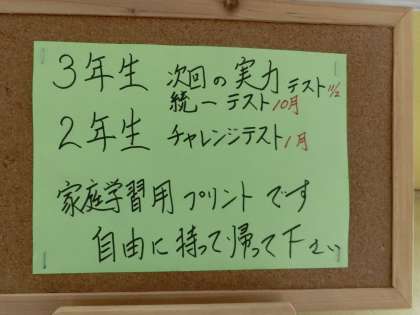 3年生 次回の実力テスト11/2
統一テスト10月
2年生 チャレンジテスト1月
家庭学習用プリントです
自由に持って帰って下さい